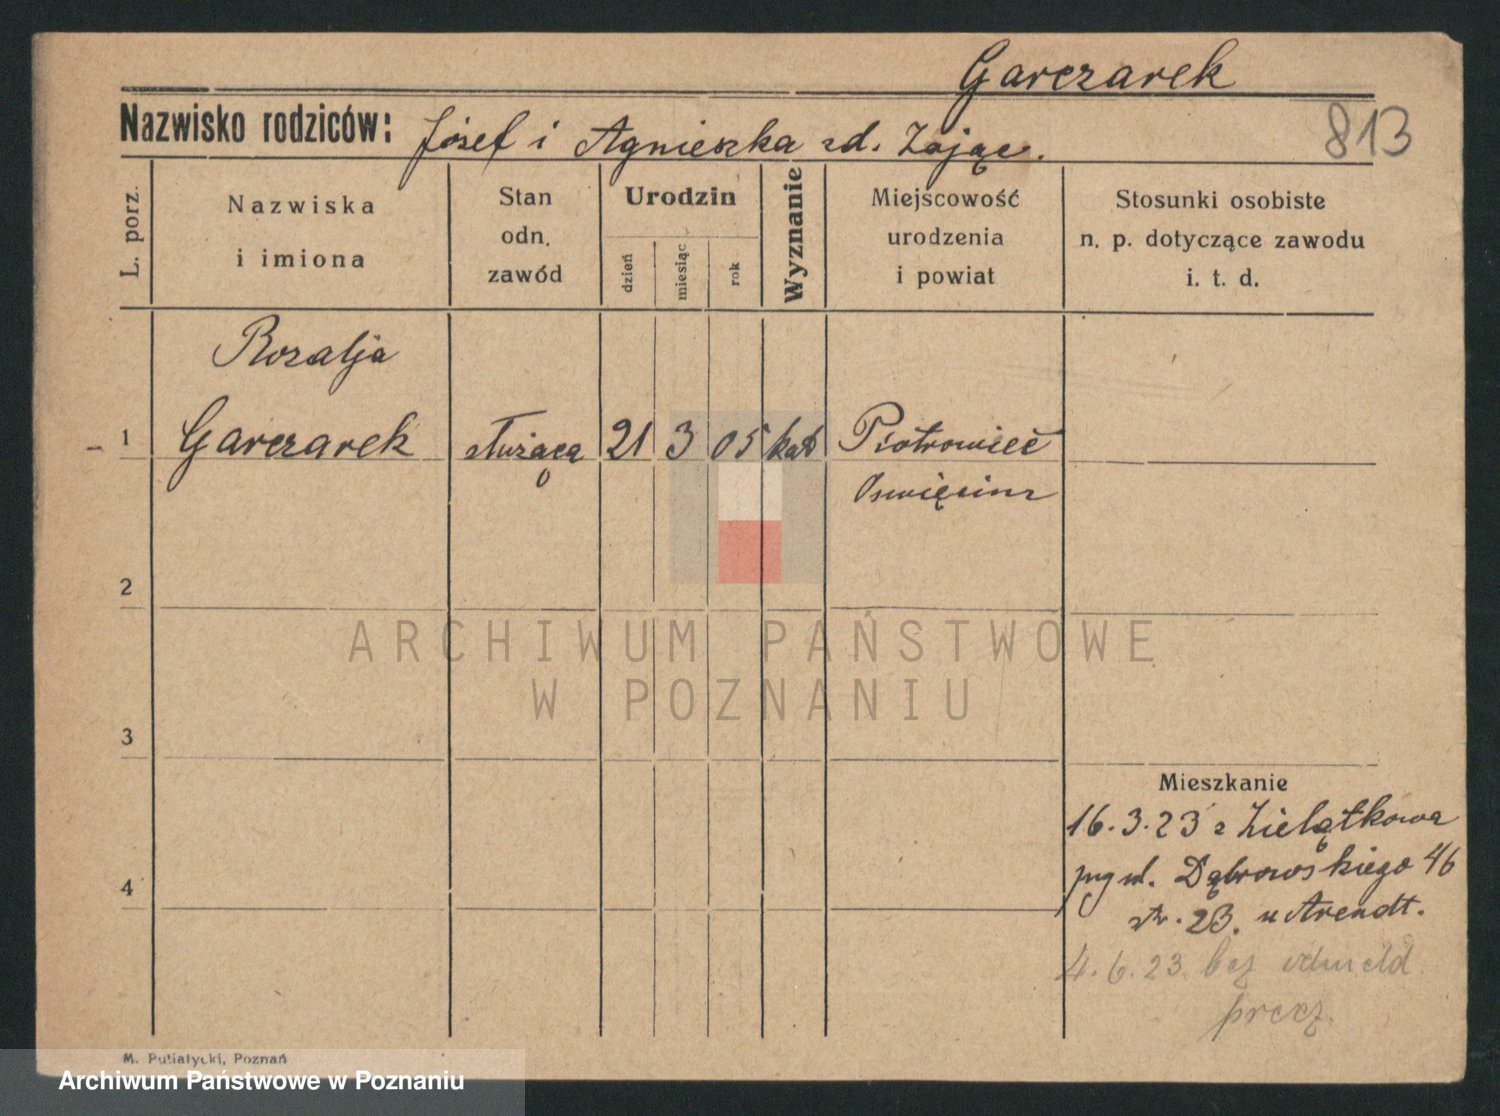 Garczarek
Nazwisko rodziców: Józef i Agnieszka zd. Zając.
813
L. porz.
Nazwiska
i imiona
Stan
odn.
zawód
Urodzin
dzień
miesiąc
rok
Wyznanie
Miejscowość
urodzenia
i powiat
Stosunki osobiste
n. p. dotyczące zawodu
i. t. d.
Rozalja
1 Garczarek służąca 21 3 05 kat Piotrowice
Oswięcim
2
3
4
ARCHIWUM PAŃSTWOWE
W POZNANIU
Mieszkanie
16.3.23 z Zielątkowa
Dąbrowskiego 46
23. u Arendt.
4.6.23 bez odmeld.
precz.
M. Putiatycki, Poznań
Archiwum Państwowe w Poznaniu